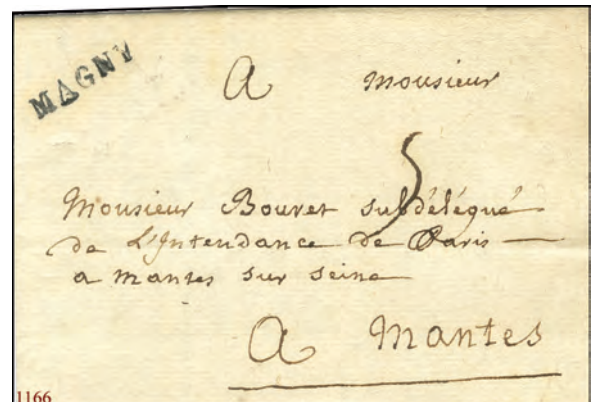 MAGNY
A Monsieur
5
Monsieur Bouret subdélégué
de L'Intendance de Paris —
a mantes sur seine
A Mantes
1166